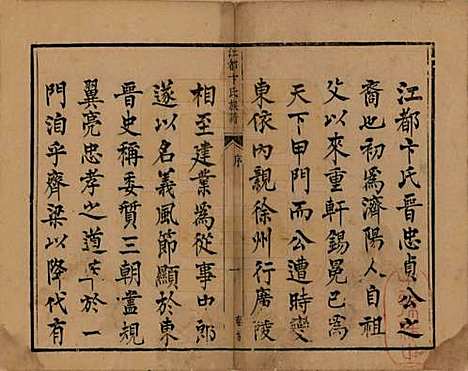 江都卞氏晉忠貞公之
裔也初為濟陽人自祖
父以來重軒錫冕已為
天下甲門而公遭時變
東依內親徐州行廣陵
江都卞氏族譜
序
一
相至建業為從事中郎
遂以名義風節顯於東
晉史稱委質三朝盡規
翼亮忠孝之道萃於一
門洎乎齊梁以降代有